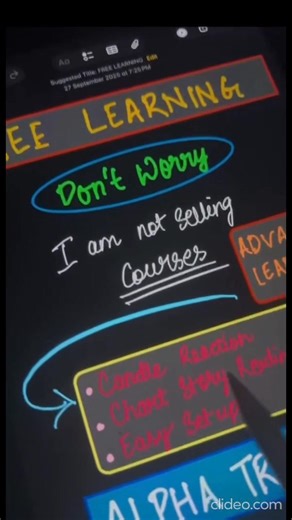 Aa
Suggested Title: FREE LEARNING Edit
27 September 2025 at 7:25 PM
EE LEARNING
Don't Worry
I am not selling
Courses
ADVA
LEA
• Candle Reaction
• Chart Story Readi
• Easy Setup
ALPHA TR
clideo.com